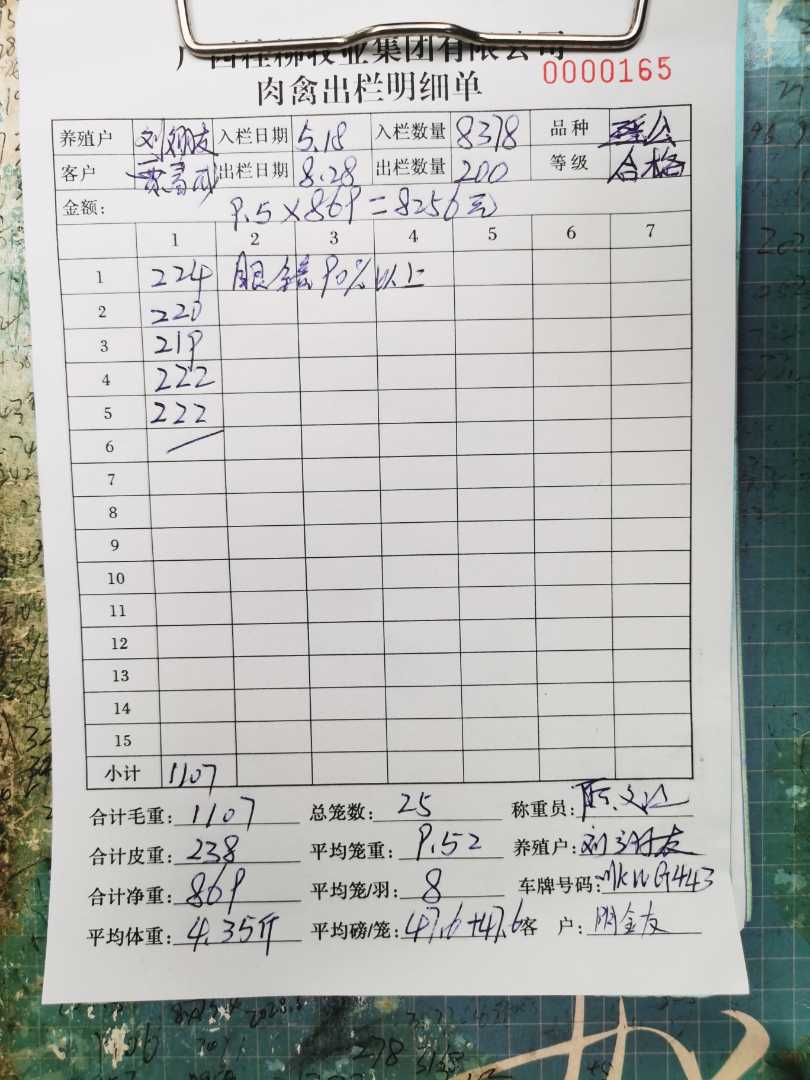 广西桂柳牧业集团有限公司
肉禽出栏明细单 0000165
养殖户 刘朋友 入栏日期 5.18 入栏数量 8378 品种
客户 出栏日期 8.28 出栏数量 200 等级 合格
金额: 9.5×869=8256元
1 2 3 4 5 6 7
1 224 眼 90%以上
2 220
3 219
4 222
5 222
6
7
8
9
10
11
12
13
14
15
小计 1107
合计毛重: 1107 总笼数: 25 称重员:
合计皮重: 238 平均笼重: 9.52 养殖户: 刘朋友
合计净重: 869 平均笼/羽: 8 车牌号码: MKWG443
平均体重: 4.35斤 平均磅/笼: 47.6+47.6 客 户: